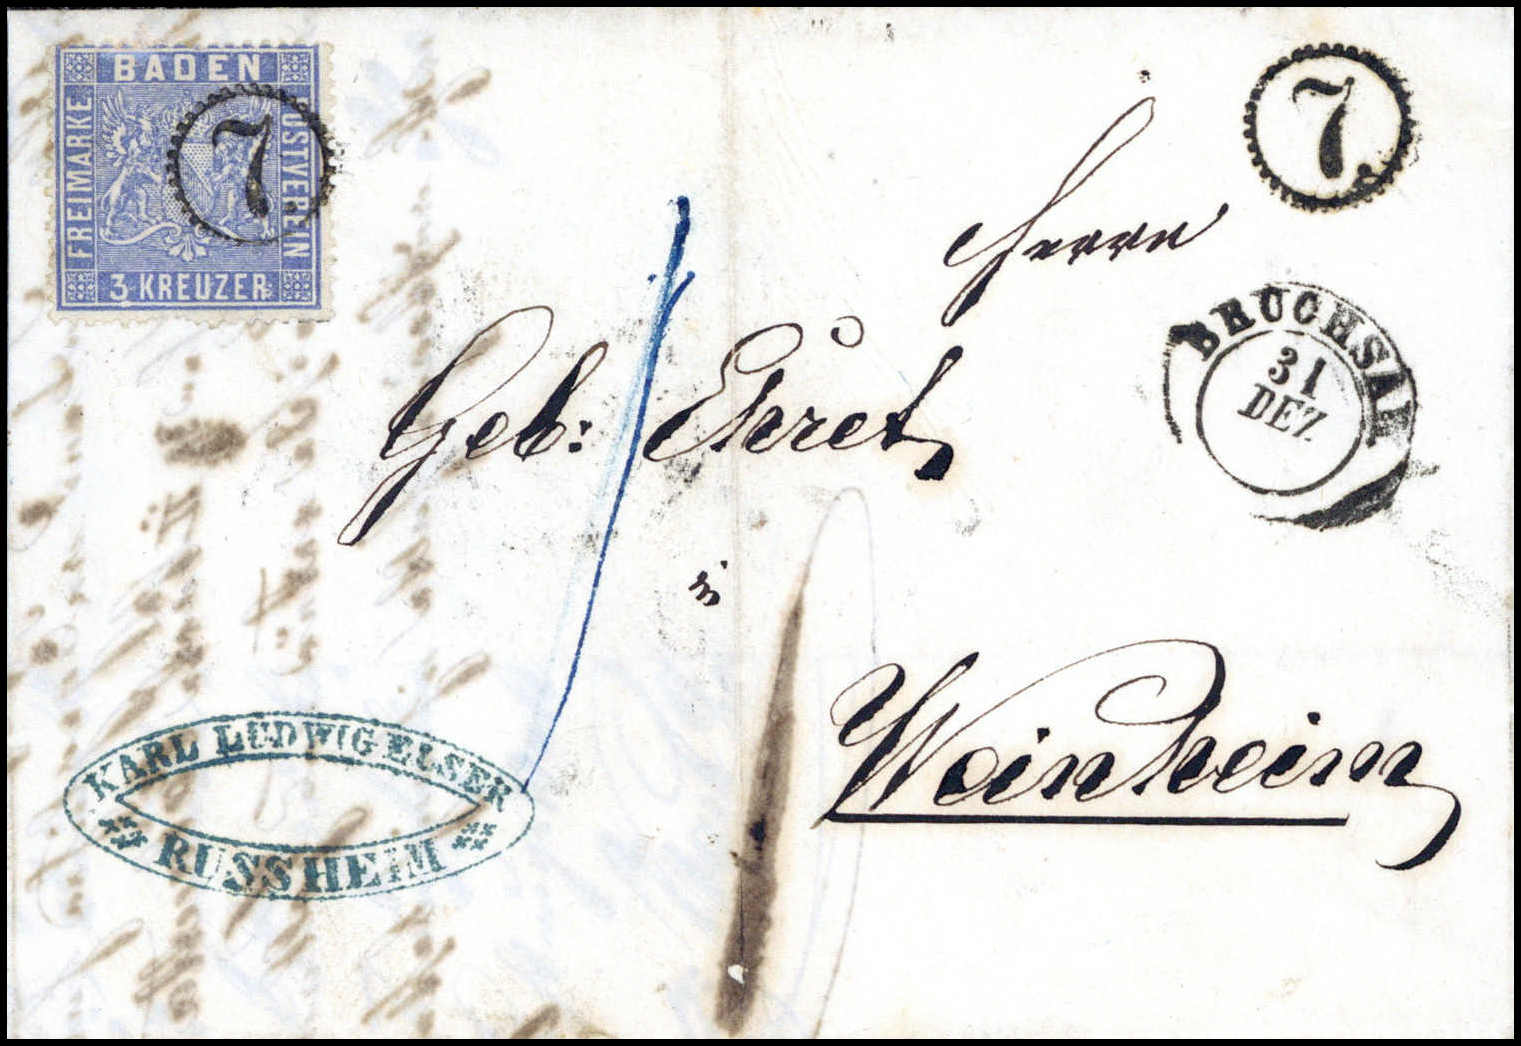 BADEN
FREIMARKE
POSTVEREIN
3 KREUZER
7
7
Herrn
BRUCHSAL
31
DEZ.
Geb: Ehret
in
Weinheim
KARL LUDWIG ELSER
RUSSHEIM